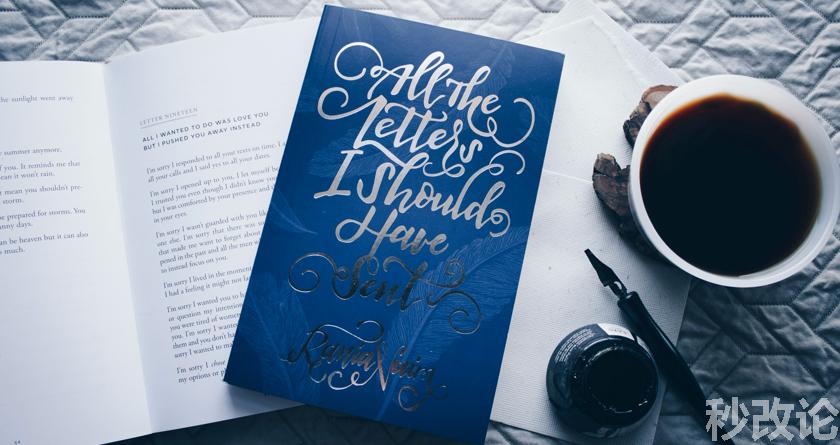 the sunlight went away
summer anymore.
of you. It reminds me that
ean it won't rain.
t mean you shouldn't pre-
be prepared for storms. You
unny days.
can be heaven but it can also
much.
64
LETTER NINETEEN
ALL I WANTED TO DO WAS LOVE YOU
BUT I PUSHED YOU AWAY INSTEAD
I'm sorry I responded to all your texts on time. I
all your calls and I said yes to all your dates.
I'm sorry I opened up to you. I let myself be
I trusted you even though I didn't know you
but I was comforted by your presence and the
in your eyes.
I'm sorry I wasn't guarded with you like
one else. I'm sorry that there was so
that made me want to forget about
pened in the past and all the men w
to instead focus on you.
I'm sorry I lived in the moment
I had a feeling it might not last
I'm sorry I wanted you to b
or question my intention
you were tired of women
them and you don't ha
sorry I wanted to ma
I'm sorry I chose
my options or p
All the
Letters
I Should
Have
Sent
Rania Naim
秒改论